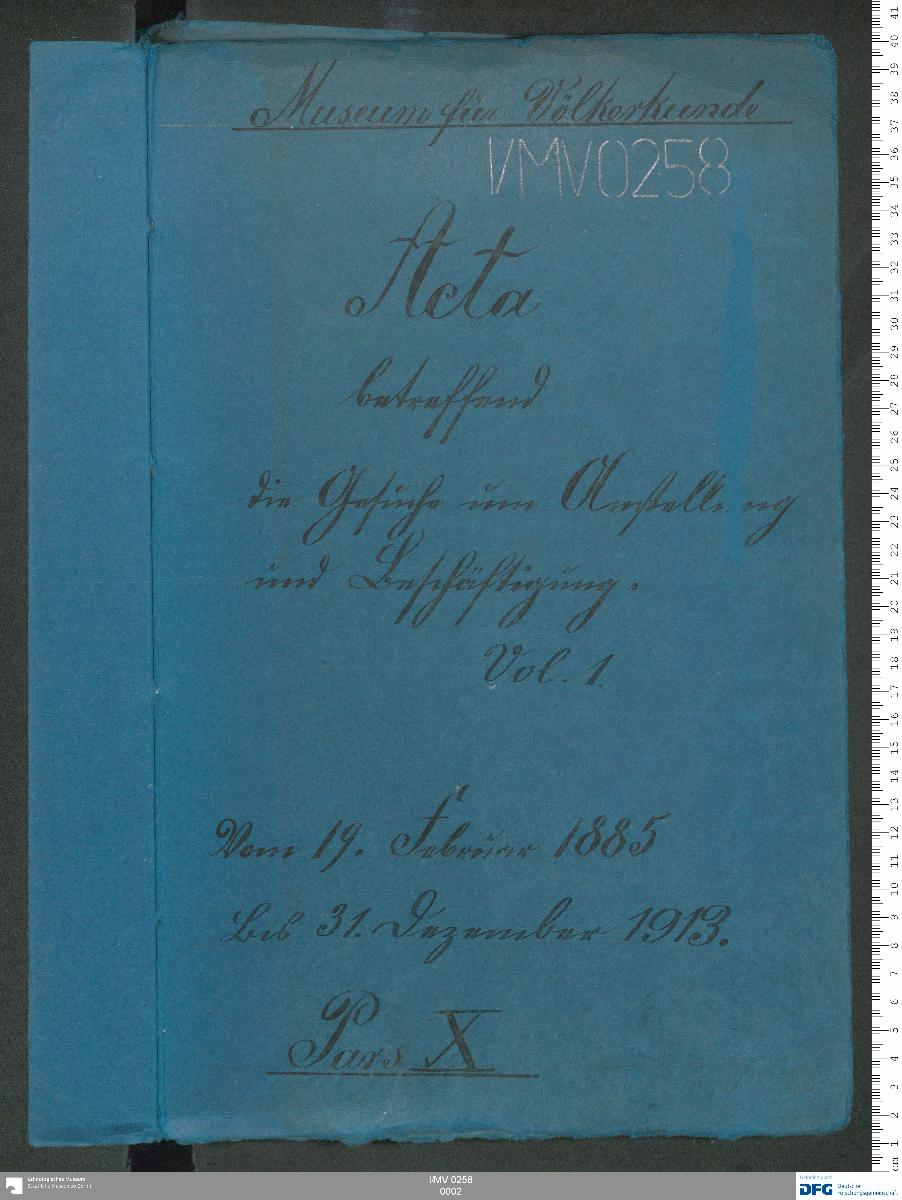 Museum für Völkerkunde
I/MV 0258
Acta
betreffend
die Gesuche um Anstellung
und Beschäftigung.
Vol. 1.
Vom 19. Februar 1885
bis 31. Dezember 1913.
Pars X
Ethnologisches Museum
Staatliche Museen zu Berlin
I/MV 0258
0002
Gefördert durch
DFG Deutsche
Forschungsgemeinschaft
cm 1 2 3 4 5 6 7 8 9 10 11 12 13 14 15 16 17 18 19 20 21 22 23 24 25 26 27 28 29 30 31 32 33 34 35 36 37 38 39 40 41